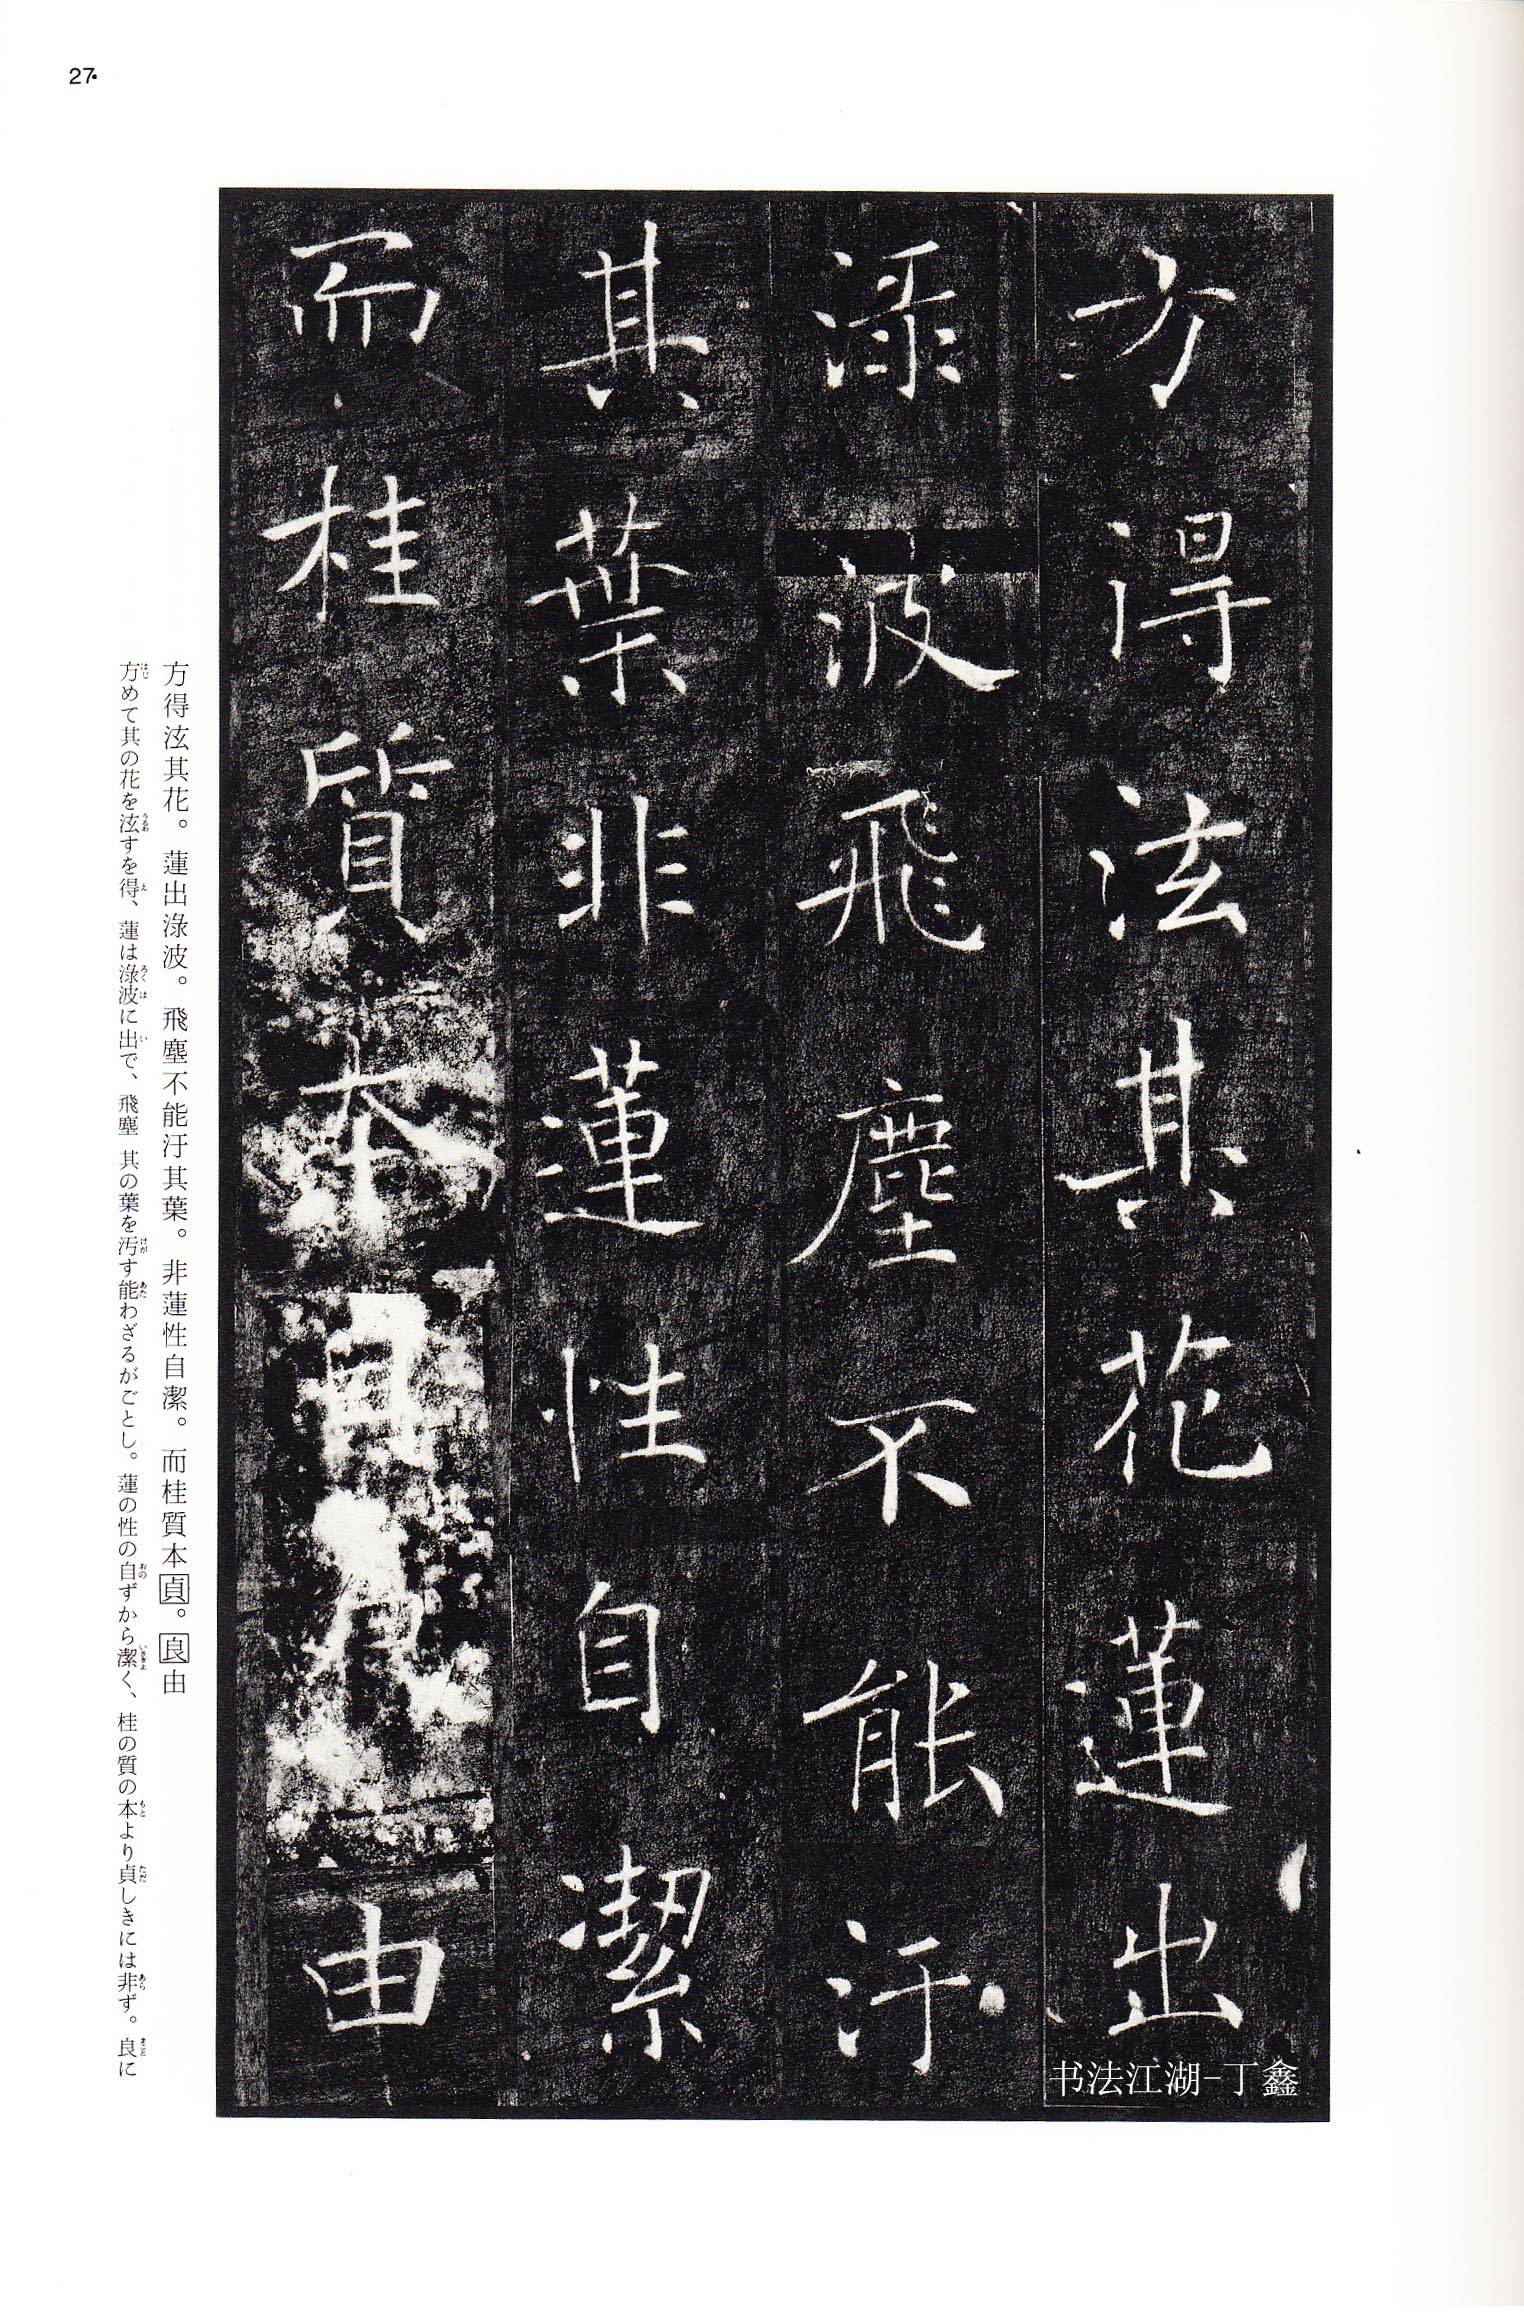 27
方得泫其花蓮出
渌波飛塵不能汙
其葉非蓮性自潔
而桂質本 由
书法江湖-丁鑫
方得泫其花。蓮出渌波。飛塵不能汙其葉。非蓮性自潔。而桂質本貞。良由
方めて其の花を泫すを得、蓮は渌波に出で、飛塵 其の葉を汚す能わざるがごとし。蓮の性の自ずから潔く、桂の質の本より貞しきには非ず。良に